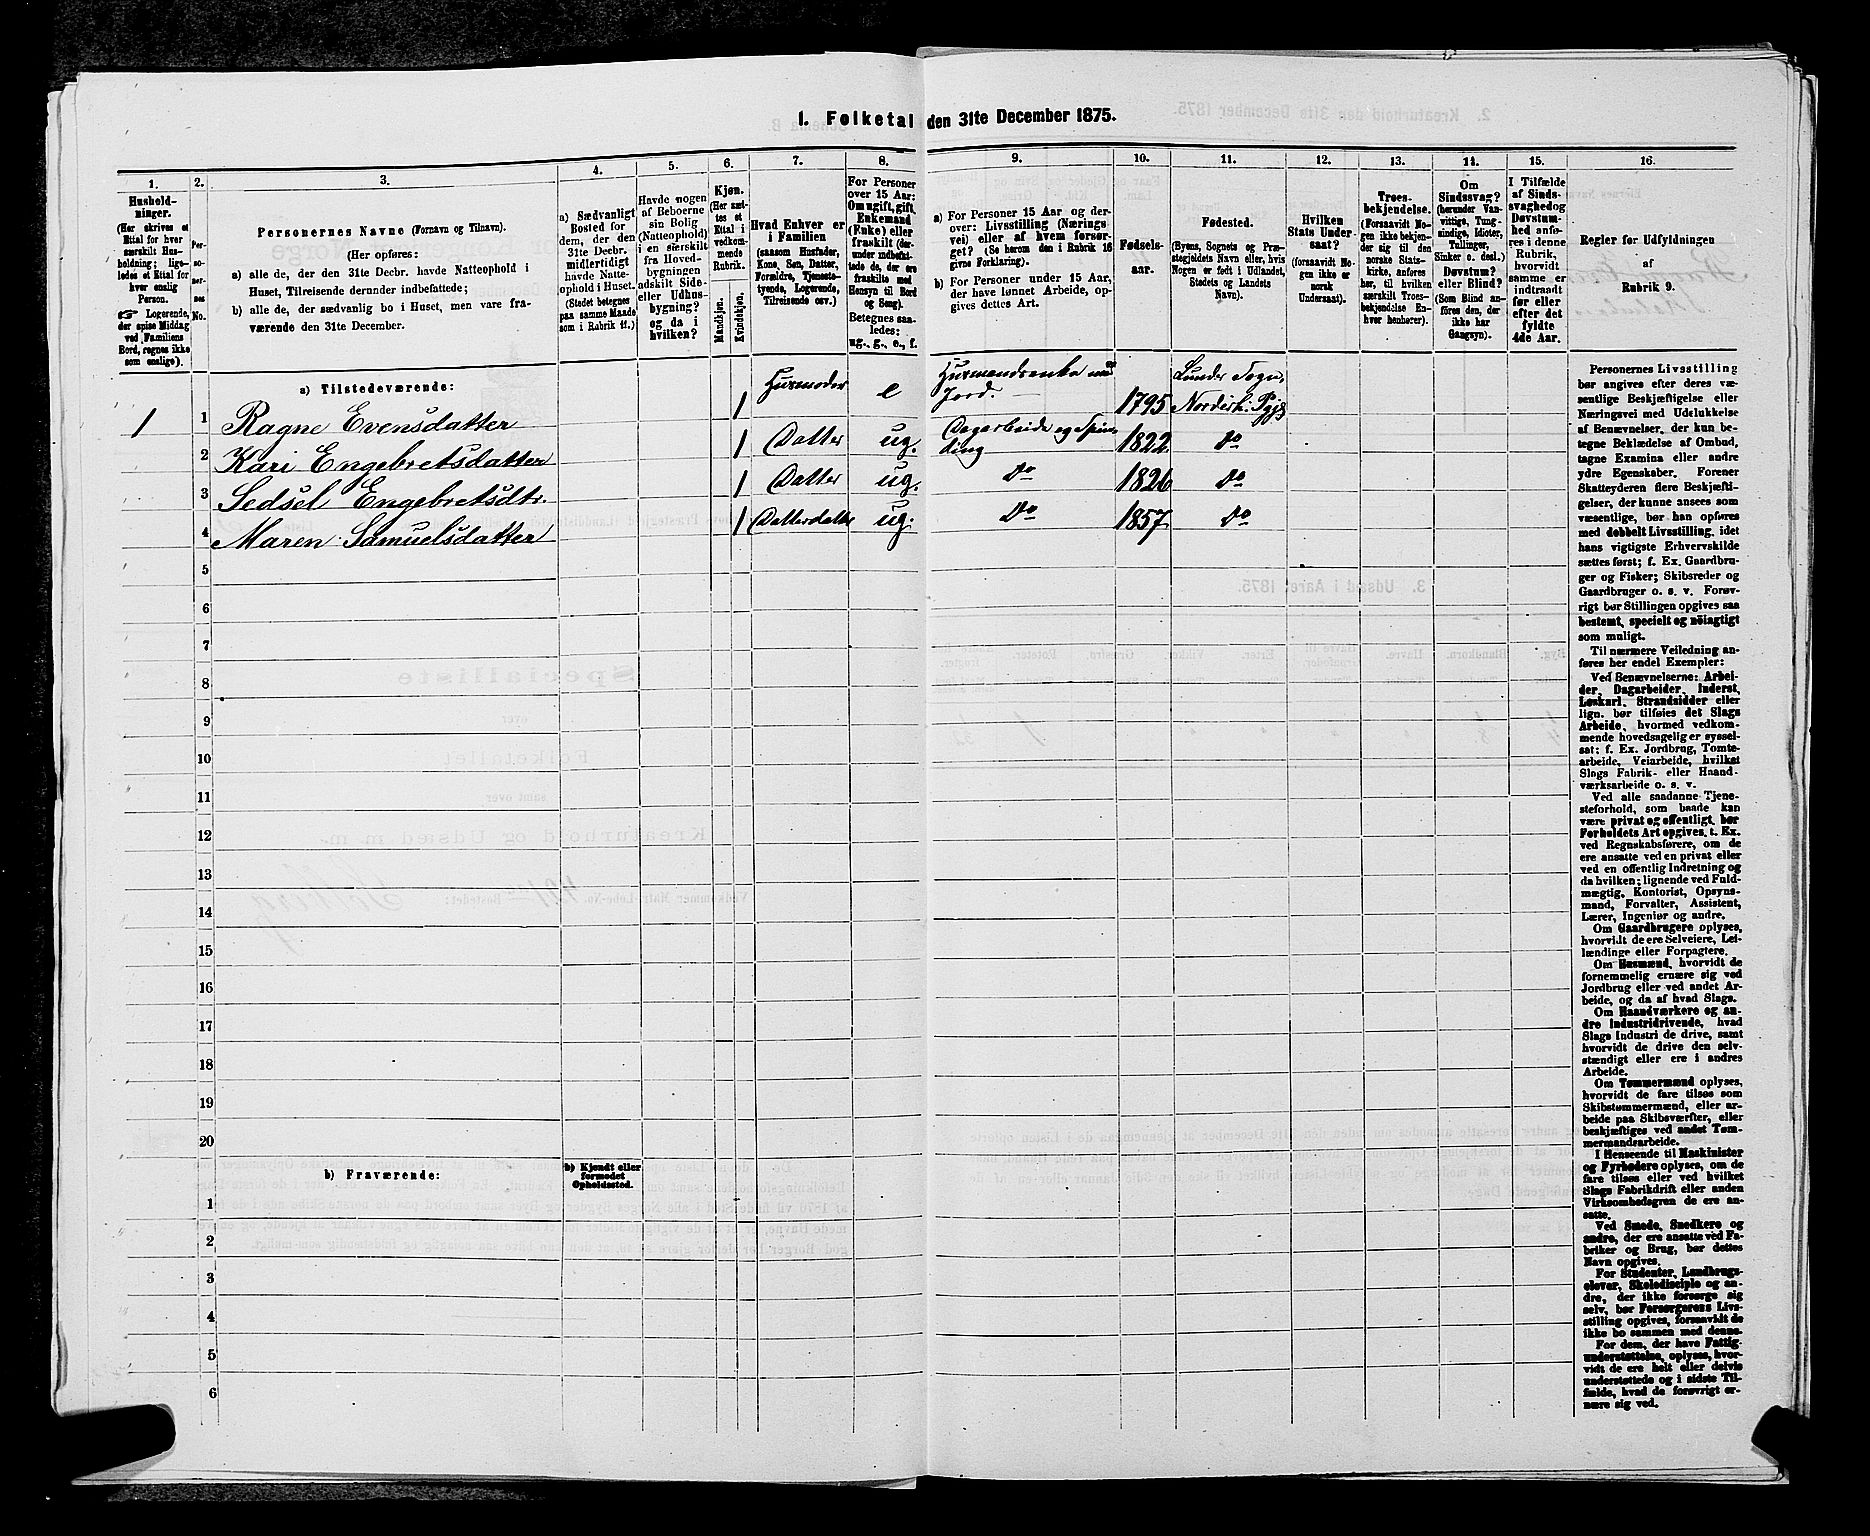 1. Folketal den 31te December 1875.
1.
2.
3.
4.
5.
6.
7.
8.
9.
10.
11.
12.
13.
14.
15.
16.
Hushold-
ninger.
(Her skrives et
Ettal for hver
særskilt Hus-
holdning; lige-
ledes et Ettal for
hver enslig
Person.
☞ Logerende,
der spise Middag
ved Familiens
Bord, regnes ikke
som enslige).
Per-
so-
ner-
nes
No.
Personernes Navne (Fornavn og Tilnavn).
(Her opføres:
a) alle de, der den 31te Decbr. havde Natteophold i
Huset, Tilreisende derunder indbefattede;
b) alle de, der sædvanlig bo i Huset, men vare fra-
værende den 31te December.
a) Sædvanligt
Bosted for
dem, der den
31te Decbr.
midlertidigt
havde Natte-
ophold i Huset.
(Stedet betegnes
paa samme Maade
som i Rubrik 11.)
Havde nogen
af Beboerne
sin Bolig
(Natteophold)
i en særskilt
fra Hoved-
bygningen
adskilt Side-
eller Udhus-
bygning?
og da i
hvilken?
Kjøn.
(Her sæt-
tes et
Ettal i
vedkom-
mende
Rubrik.
Mandkjøn.
Kvindekjøn.
Hvad Enhver er
i Familien
(saasom Husfader,
Kone, Søn, Datter,
Forældre, Tjeneste-
tyende, Logerende,
Tilreisende osv.)
For Personer
over 15 Aar:
Om ugift, gift,
Enkemand
(Enke) eller
fraskilt (der-
under indbefat-
tede de, der ere
fraskilte med
Hensyn til Bord
og Seng).
Betegnes saa-
ledes:
ug., g., e., f.
a) For Personer 15 Aar og der-
over: Livsstilling (Nærings-
vei) eller af hvem forsør-
get? (Se herom den i Rubrik 16
givne Forklaring).
b) For Personer under 15 Aar,
der have lønnet Arbeide, op-
gives dettes Art.
Fødsels-
aar.
Fødested.
(Byens, Sognets og Præ-
stegjeldets Navn eller, hvis
Nogen er født i Udlandet,
Stedets og Landets
Navn).
Hvilken
Stats Under-
saat?
(forsaavidt No-
gen ikke er
norsk
Undersaat).
Troes-
bekjendelse.
(Forsaavidt No-
gen ikke bekjen-
der sig til den
norske Stats-
kirke, anføres
her, til hvilken
særskilt Troes-
bekjendelse En-
hver henhører).
Om
Sindssvag?
(herunder Van-
vittige, Tung-
sindige, Idioter,
Tullinger,
Sinker o. desl.)
Døvstum?
eller Blind?
(Som Blind an-
føres den, der
ikke har
Gangsyn).
I Tilfælde
af Sinds-
svaghed og
Døvstum-
hed anfø-
res i denne
Rubrik,
hvorvidt
samme er
indtraadt
før eller
efter det
fyldte
4de Aar.
Regler for Udfyldningen
af
Rubrik 9.
a) Tilstedeværende:
1 1 Ragne Evensdatter 1 Husmoder e Husmandsenke med Jord. 1795 Lunder Sogn, Norderh: Pgjd
2 Kari Engebretsdatter 1 Datter ug. Dagarbeide og Spinding 1822 Do
3 Sedsel Engebretsdtr. 1 Datter ug. Do 1826 Do
4 Maren Samuelsdatter 1 Datterdatter ug. Do 1857 Do
5
6
7
8
9
10
11
12
13
14
15
16
17
18
19
20
b) Fraværende:
b) Kjendt eller
formodet
Opholdssted.
1
2
3
4
5
6
Personernes Livsstilling
bør angives efter deres væ-
sentlige Beskjæftigelse eller
Næringsvei med Udelukkelse
af Benævnelser, der kun be-
tegne Beklædelse af Ombud,
tagne Examina eller andre
ydre Egenskaber. Forener
Skatteyderen flere Beskjæfti-
gelser, der kunne ansees som
væsentlige, bør han opføres
med dobbelt Livsstilling, idet
hans vigtigste Erhvervskilde
sættes først; f. Ex. Gaardbru-
ger og Fisker; Skibsreder og
Gaardbruger o. s. v. Forøv-
rigt bør Stillingen opgives saa
bestemt, specielt og nøiagtigt
som muligt.
Til nærmere Veiledning an-
føres her endel Exempler:
Ved Benævnelserne: Arbei-
der, Dagarbeider, Inderst,
Løskarl, Strandsidder eller
lign. bør tilføies det Slags
Arbeide, hvormed vedkom-
mende hovedsagelig er syssel-
sat; f. Ex. Jordbrug, Tomte-
arbeide, Veiarbeide, hvilket
Slags Fabrik- eller Haand-
værksarbeide o. s. v.
Ved alle saadanne Tjene-
steforhold, som baade kan
være privat og offentligt, bør
Forholdets Art opgives, t. Ex.
ved Regnskabsførere, om de
ere ansatte ved en privat eller
ved en offentlig Indretning og
da hvilken; lignende ved Fuld-
mægtig, Kontorist, Opsyns-
mand, Forvalter, Assistent,
Lærer, Ingeniør og andre.
Om Gaardbrugere oplyses,
hvorvidt de ere Selveiere, Lei-
lændinge eller Forpagtere.
Om Husmænd, hvorvidt de
fornemmelig ernære sig ved
Jordbrug eller ved andet Ar-
beide, og da af hvad Slags.
Om Haandværkere og an-
dre Industridrivende, hvad
Slags Industri de drive, samt
hvorvidt de drive den selv-
stændigt eller ere i andres
Arbeide.
Om Tømmermænd oplyses,
hvorvidt de fare tilsøs som
Skibstømmermænd, eller ar-
beide paa Skibsværfter, eller
beskjæftiges ved andet Tøm-
mermandsarbeide.
I Henseende til Maskinister
og Fyrbødere oplyses, om de
fare tilsøs eller ved hvilket
Slags Fabrikdrift eller anden
Virksomhedsgren de ere an-
satte.
Ved Smede, Snedkere og
andre, der ere ansatte ved Fa-
briker og Brug, bør dettes
Navn opgives.
For Studenter, Landbrugs-
elever, Skoledisciple og an-
dre, der ikke forsørge sig
selv, bør Forsørgerens Livs-
stilling opgives, forsaavidt de
ikke bo sammen med denne.
For dem, der have Fattig-
understøttelse, oplyses, hvor-
vidt de ere helt eller delvis
understøttede og i sidste Til-
fælde, hvad de forøvrigt er-
nære sig ved.